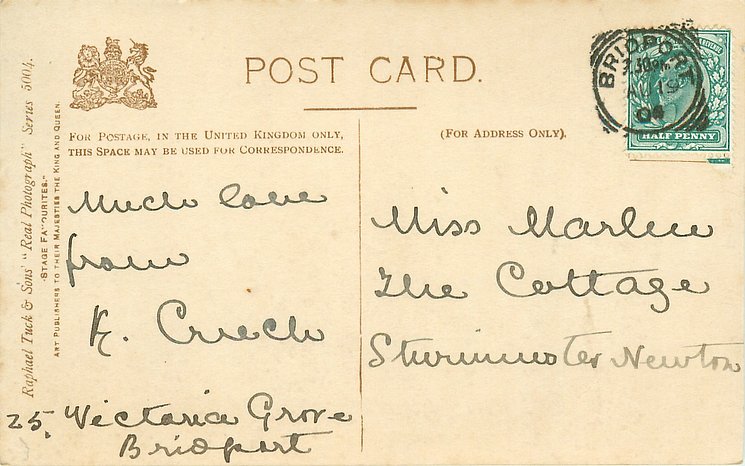 POST CARD.
BRIDPORT
AU 19
04
HALF PENNY
FOR POSTAGE, IN THE UNITED KINGDOM ONLY,
THIS SPACE MAY BE USED FOR CORRESPONDENCE.
(FOR ADDRESS ONLY).
Raphael Tuck & Sons' "Real Photograph" Series 5004.
"STAGE FAVOURITES."
ART PUBLISHERS TO THEIR MAJESTIES THE KING AND QUEEN.
Much love
from
K. Creech
25, Victoria Grove
Bridport
Miss Marlen
The Cottage
Sturminster Newton